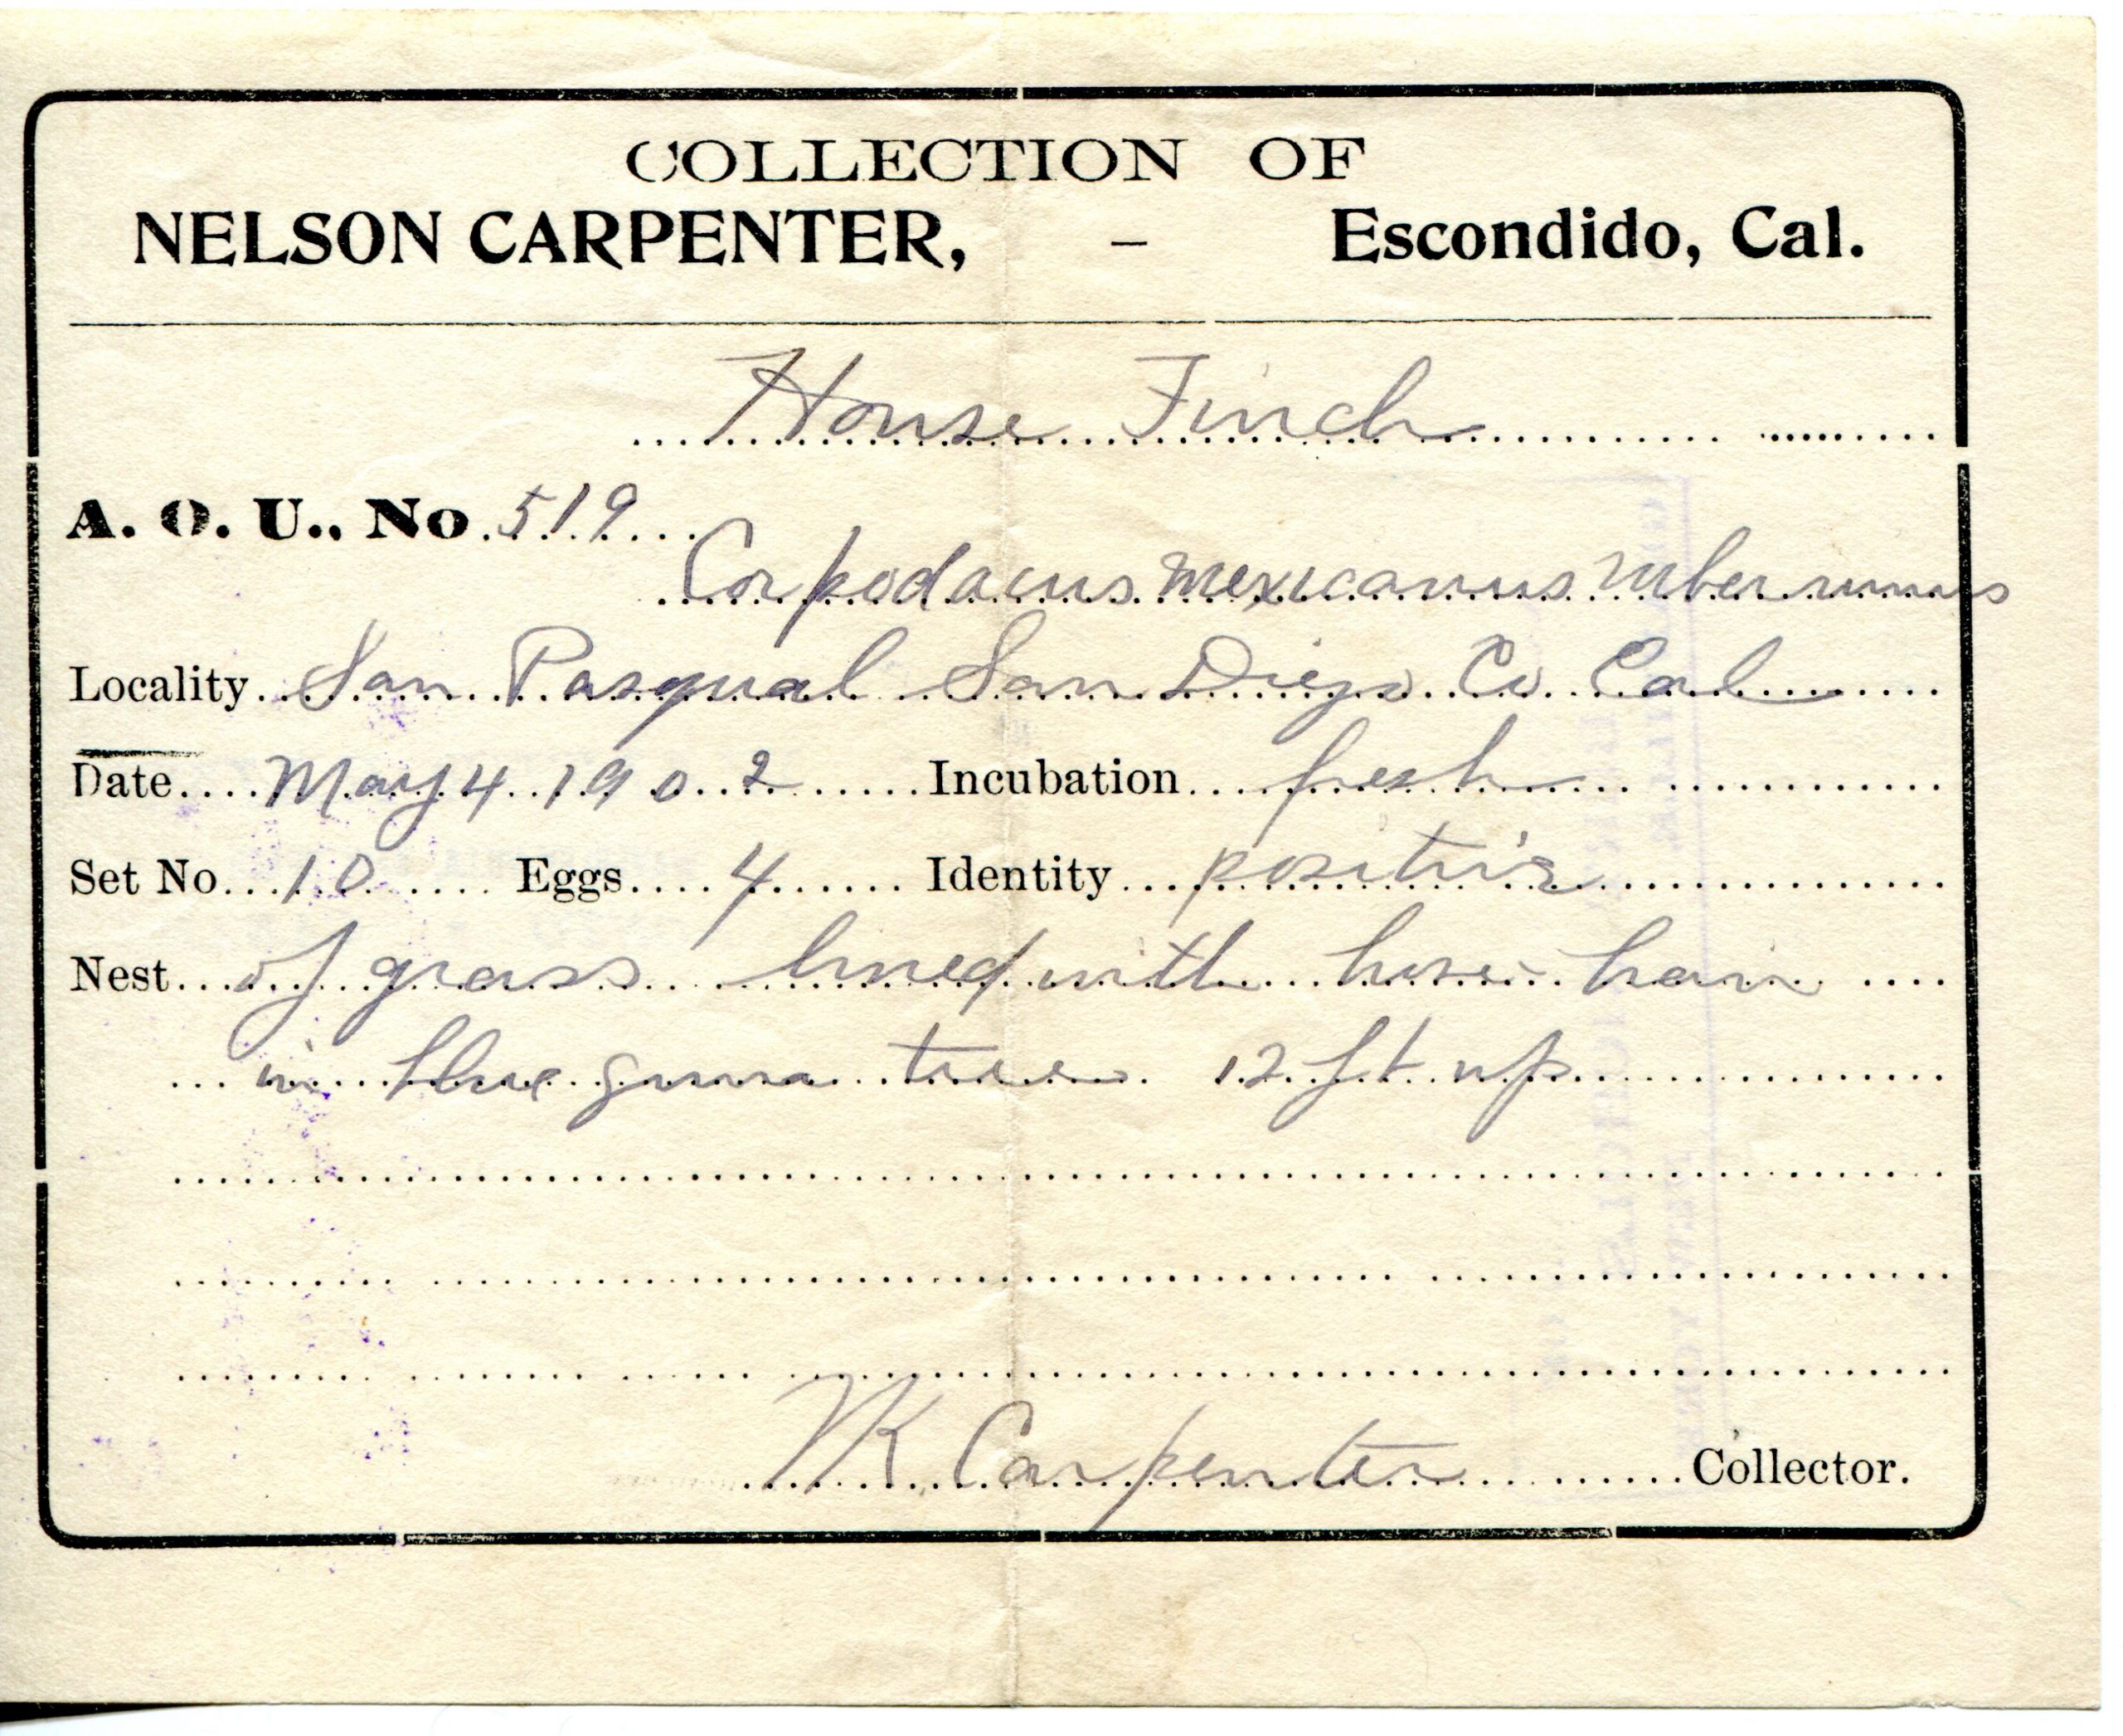 COLLECTION OF
NELSON CARPENTER, - Escondido, Cal.
House Finch
A. O. U., No. 519
Carpodacus mexicanus
Locality San Pasqual San Diego Co Cal
Date May 4 1902 Incubation fresh
Set No. 10 Eggs 4 Identity positive
Nest of grass lined with horse hair
in blue gum tree 12 ft up
NK Carpenter Collector.